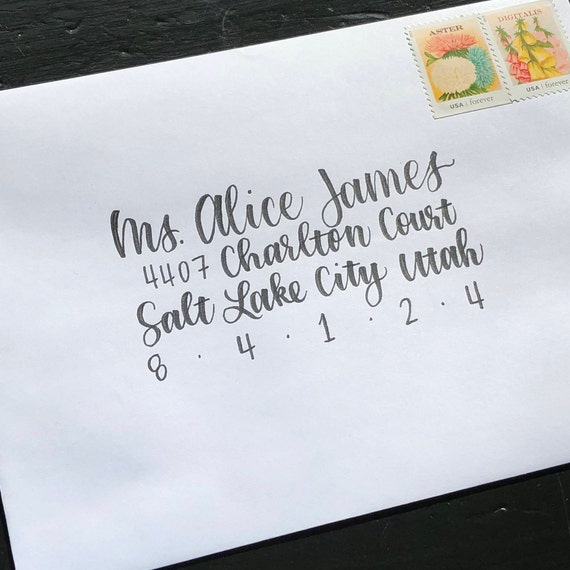 ASTER
USA | forever
DIGITALIS
USA | forever
Ms. Alice James
4407 Charlton Court
Salt Lake City Utah
8 · 4 · 1 · 2 · 4